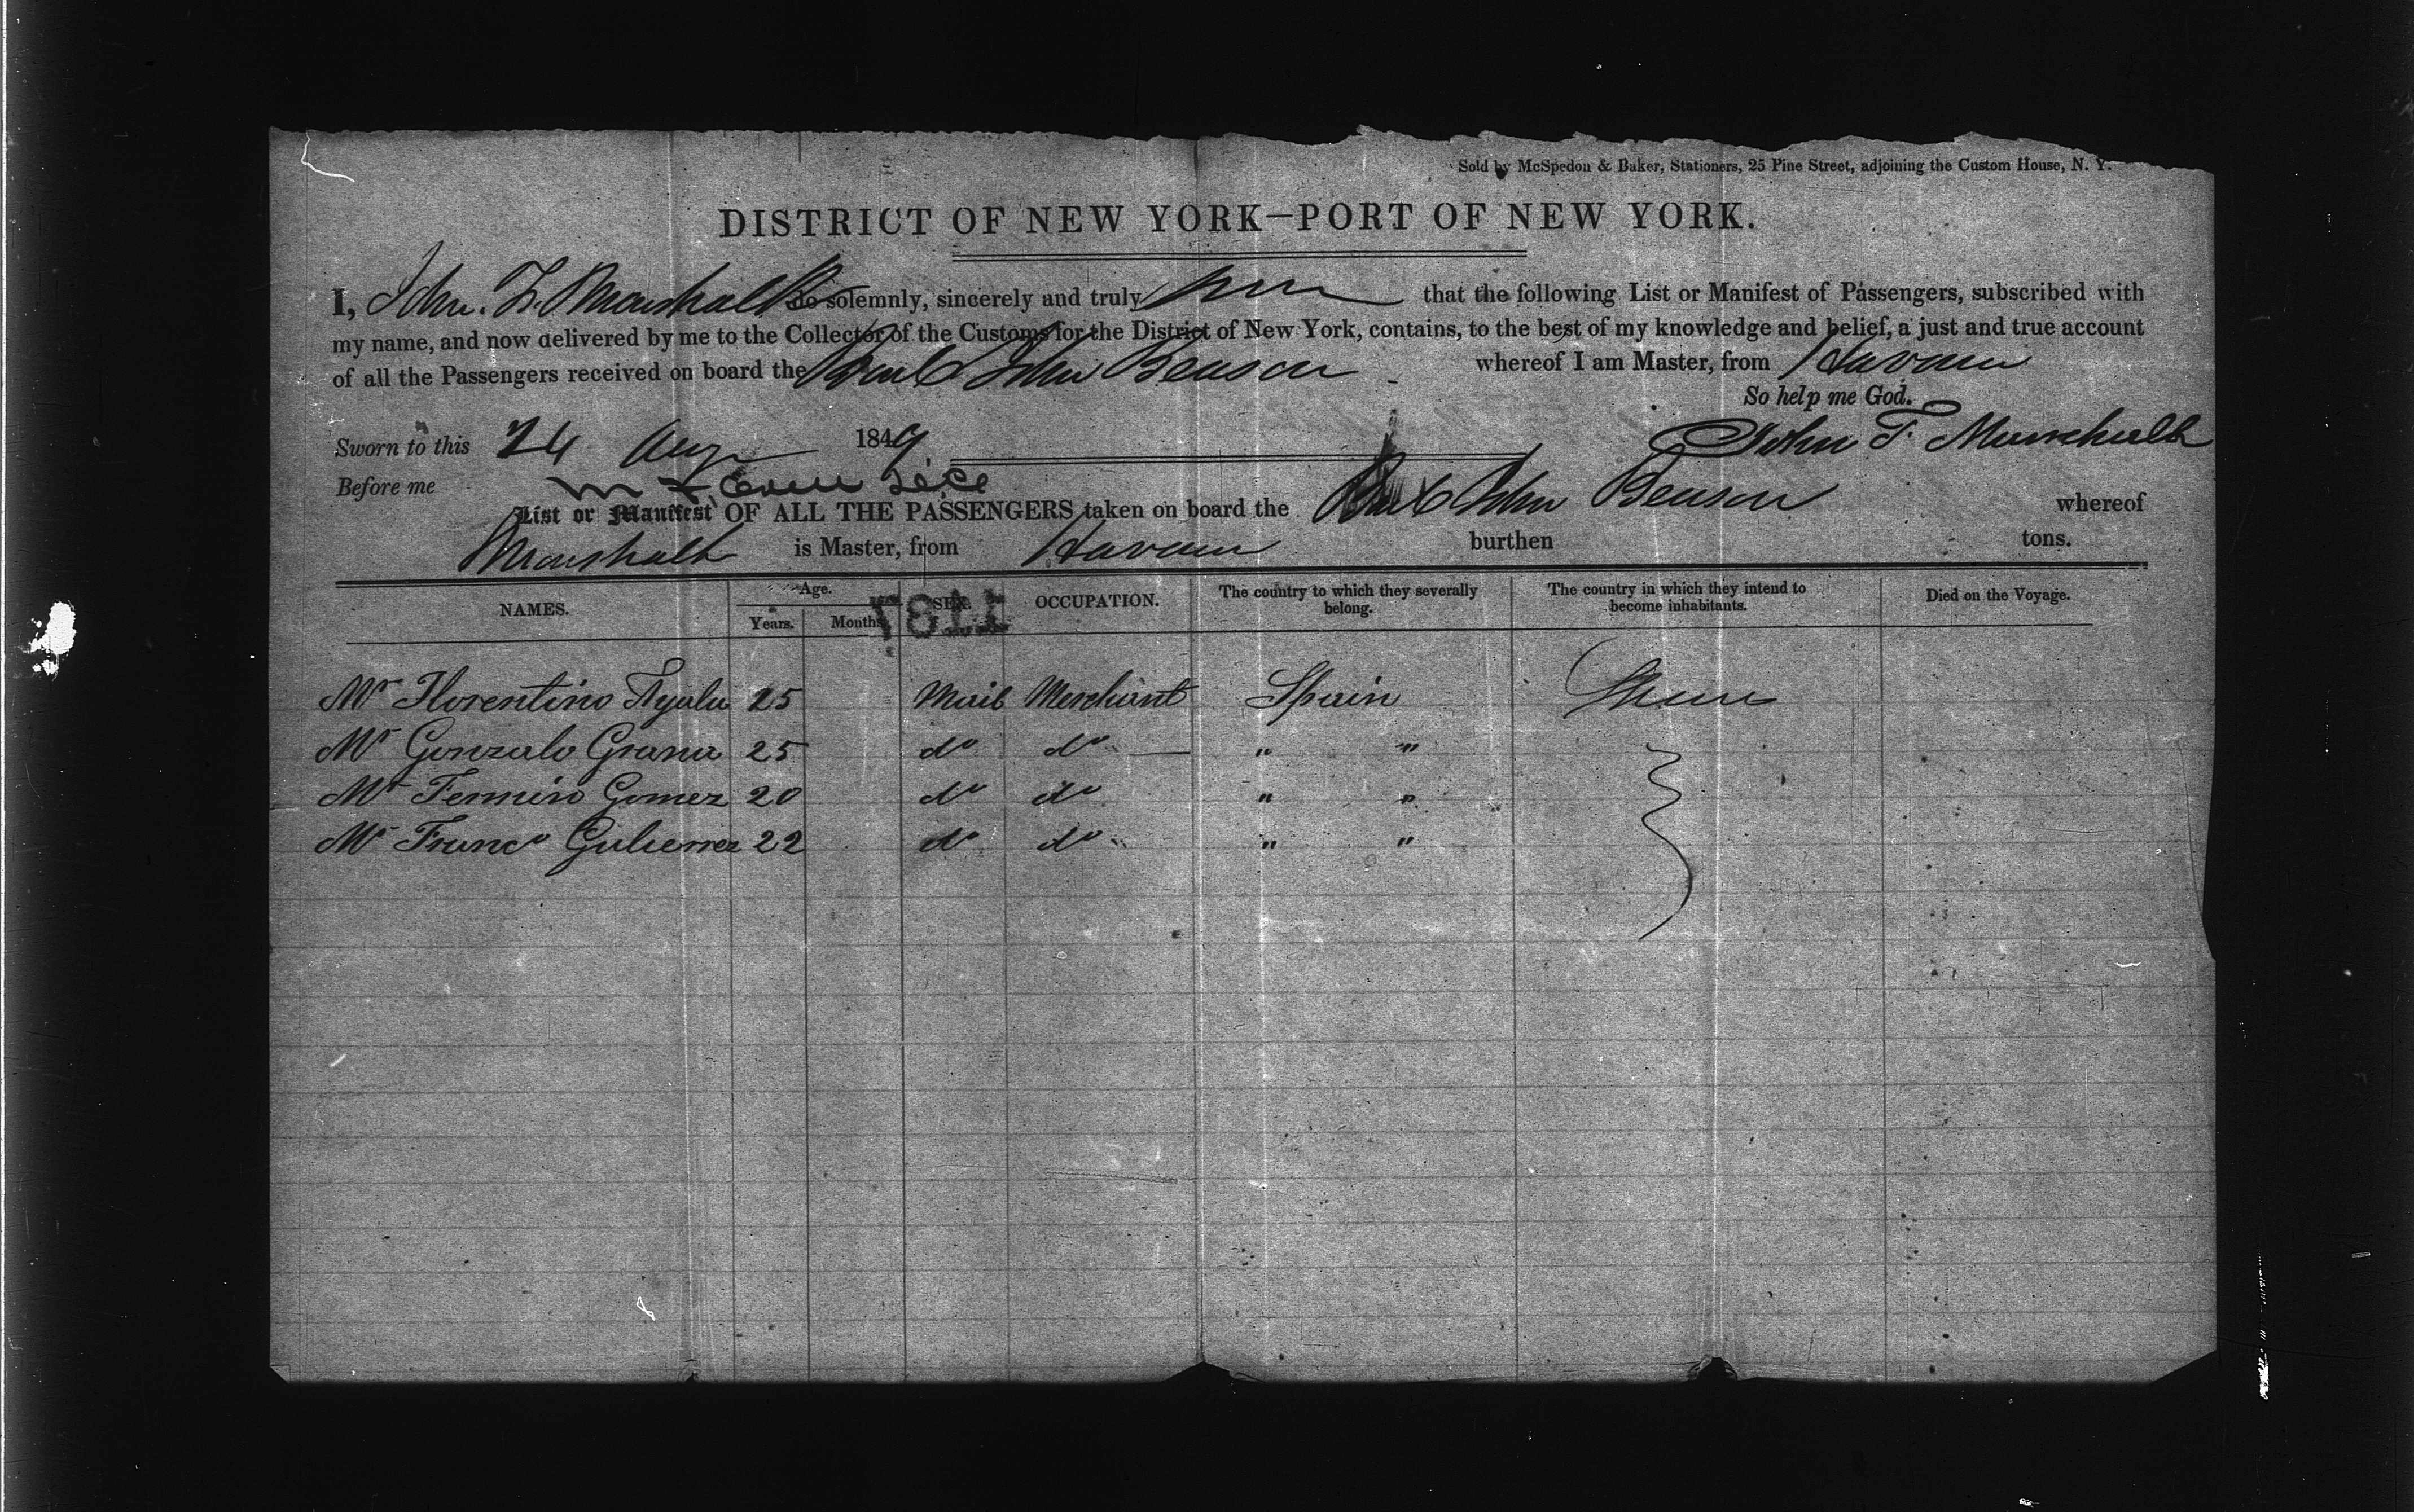 Sold by McSpedon & Baker, Stationers, 25 Pine Street, adjoining the Custom House, N. Y.
DISTRICT OF NEW YORK—PORT OF NEW YORK.
I, John. T. Marshall do solemnly, sincerely and truly that the following List or Manifest of Passengers, subscribed with
my name, and now delivered by me to the Collector of the Customs for the District of New York, contains, to the best of my knowledge and belief, a just and true account
of all the Passengers received on board the John Benson whereof I am Master, from Havana
So help me God.
Sworn to this 24 Aug 1849 John T. Marshall
Before me
List or Manifest OF ALL THE PASSENGERS taken on board the John Benson whereof
Marshall is Master, from Havana burthen tons.
NAMES. Age. Years. Months. SEX. OCCUPATION. The country to which they severally belong. The country in which they intend to become inhabitants. Died on the Voyage.
Mr Florentino Ayala 25 Male Merchant Spain
Mr Gonzalo Grana 25 do do " "
Mr Fermin Gomez 20 do do " "
Mr Franco Gutierrez 22 do do " "